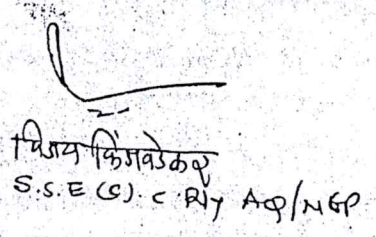 विजय किंगवडेकर
S.S.E (S). C. Rly AQ/NGP